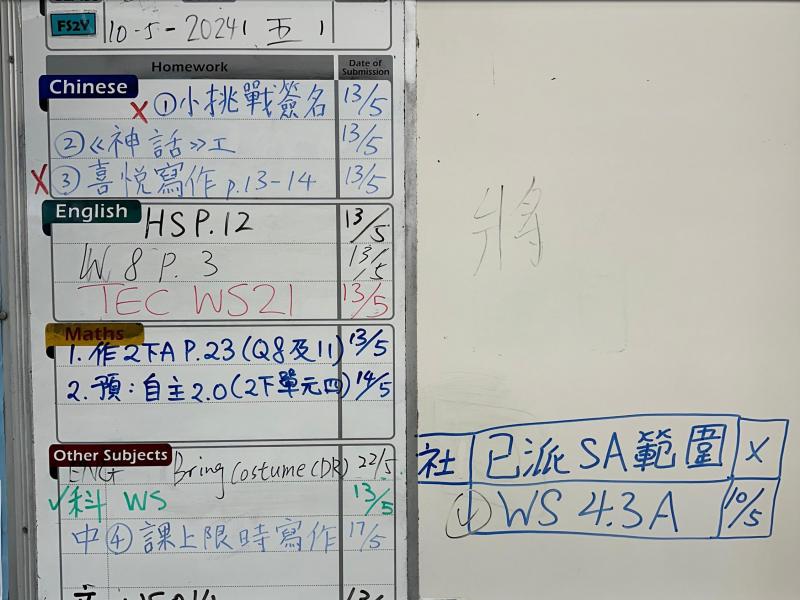 FS2Y
10-5-2024(五)
Homework Date of Submission
Chinese
①小挑戰簽名 13/5
②《神話》工 13/5
③喜悅寫作 p.13-14 13/5
English
HS P.12 13/5
W8 P.3 13/5
TEC WS21 13/5
Maths
1.作2下A P.23(Q8及11) 13/5
2.預:自主2.0(2下單元四) 14/5
Other Subjects
ENG Bring Costume(DR) 22/5
✓科 WS 13/5
中④課上限時寫作 17/5
將
社 已派SA範圍 X
WS 4.3A 10/5